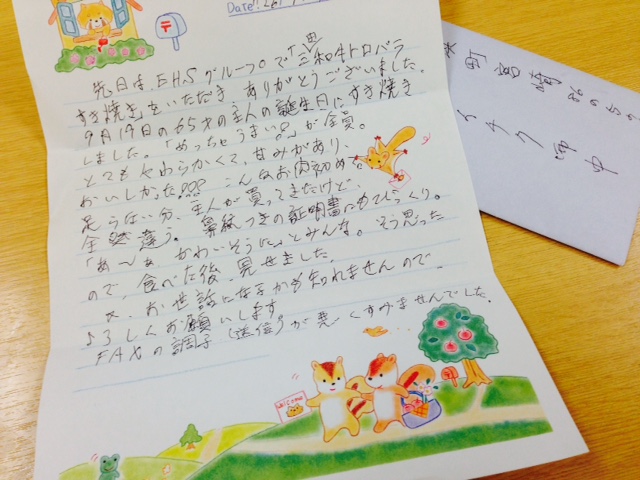 Date:
先日は、EHSグループで「三和牛トロバラ
すき焼き」をいただき ありがとうございました。
9月19日の65才の主人の誕生日にすき焼き
しました。「めっちゃうまい」が全員。
とてもやわらかくて、甘みがあり、
おいしかった こんなお肉初めて
足らない分、主人が買ってきたけど、
全然違う。鼻紋つきの証明書にもびっくり。
「あ〜ぁ かわいそうに」とみんな。そう思った
ので、食べた後、見せました。
又、お世話になるかも知れませんので、
よろしくお願いします
FAXの調子(送信)が悪くすみませんでした。
welcome
町 宮崎